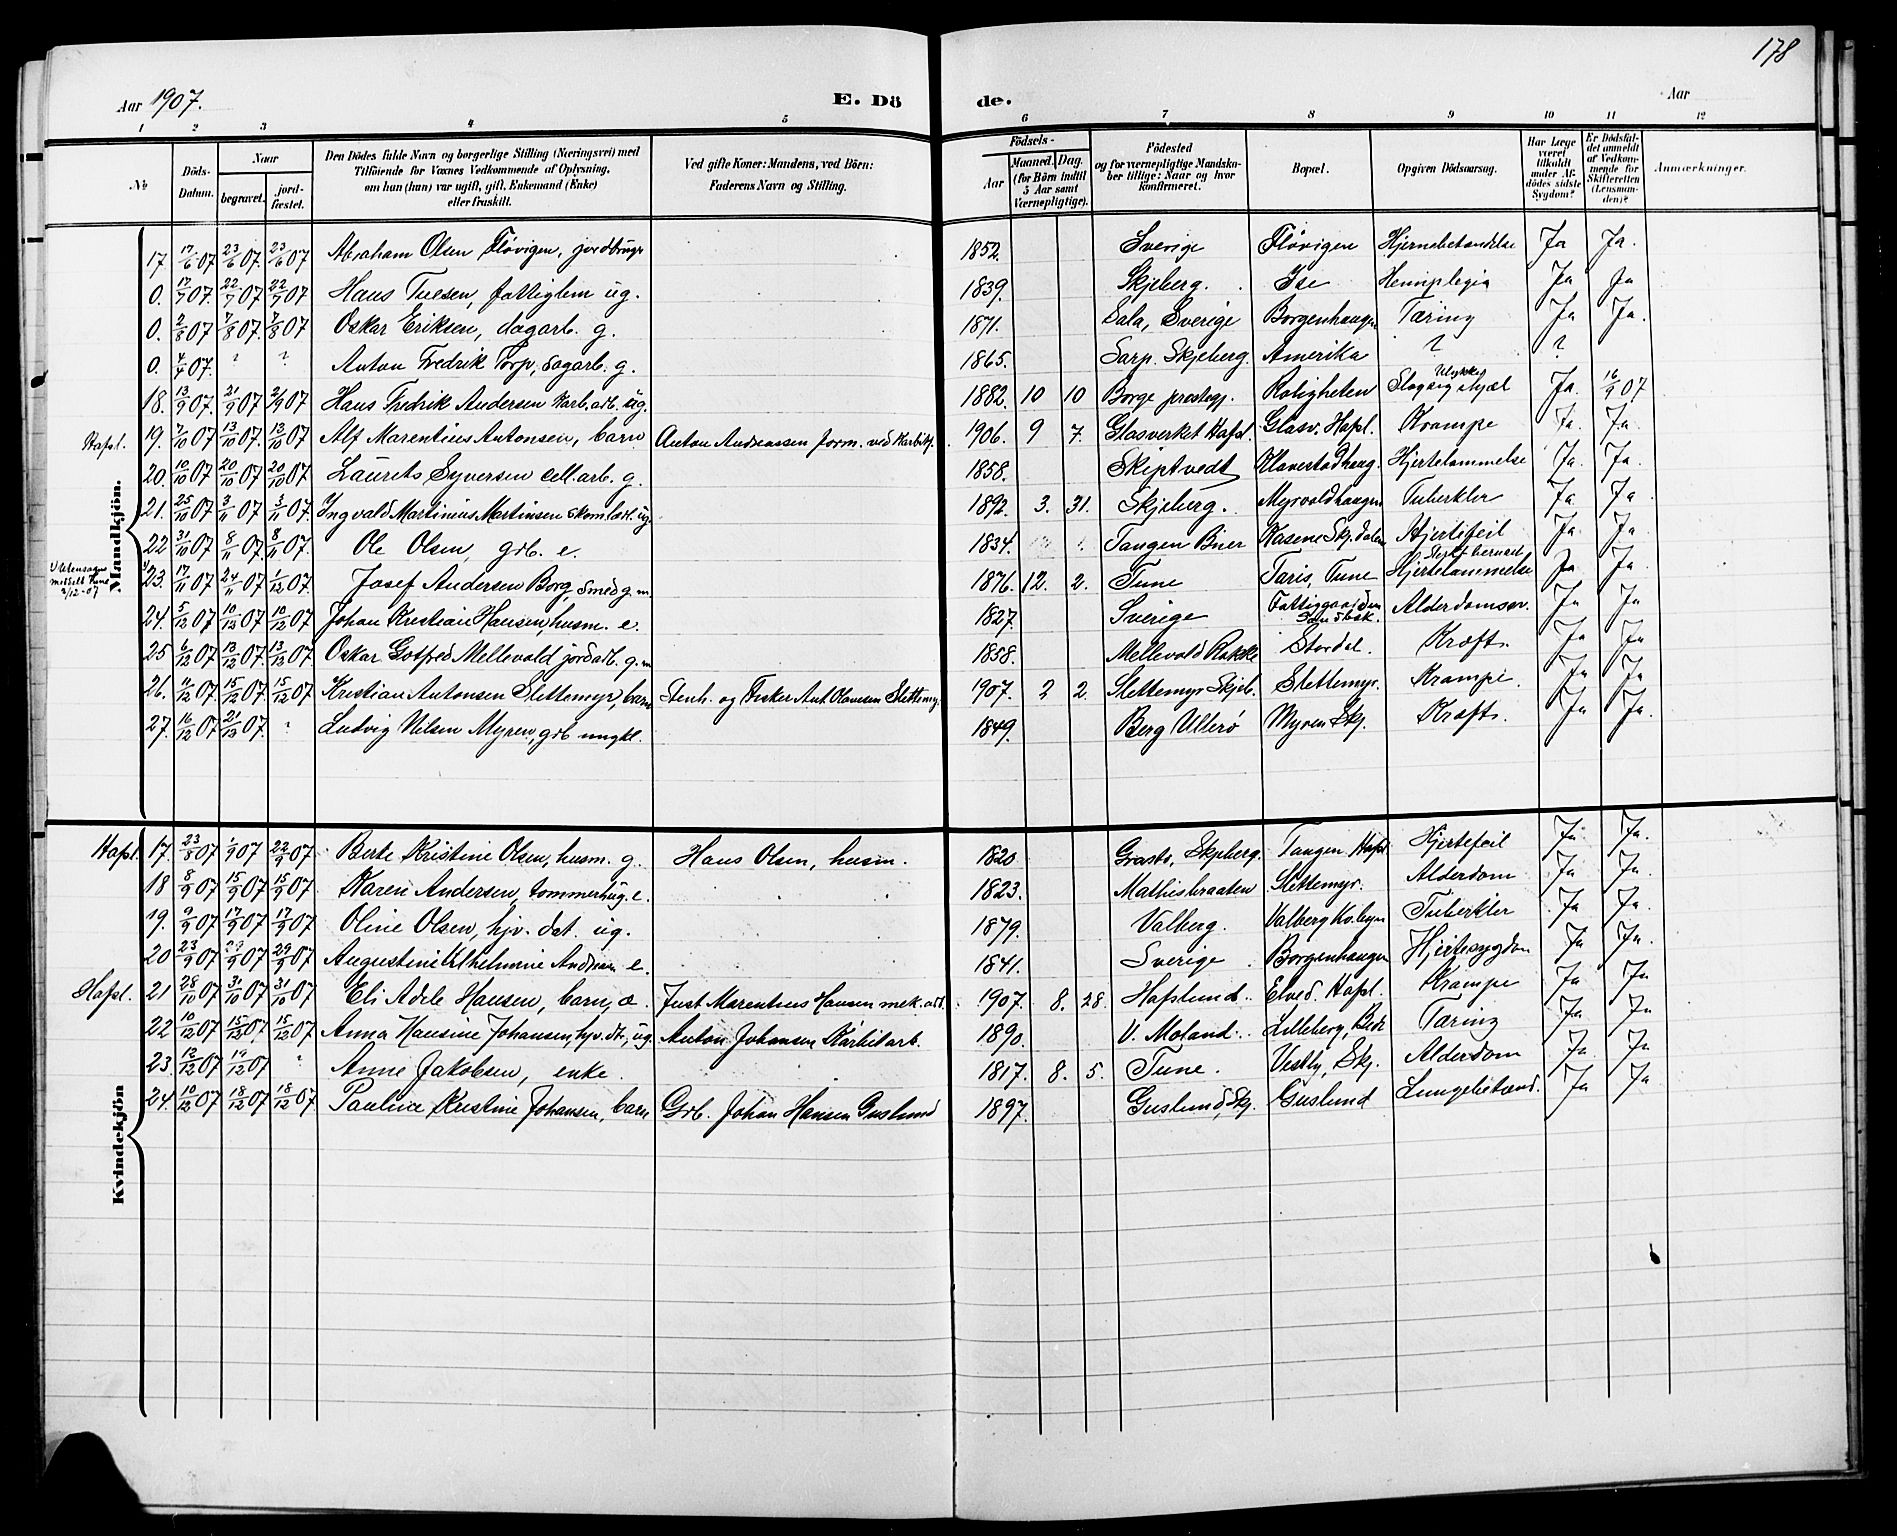 178
Aar 1907. E. Dö de. Aar
1 2 3 4 5 6 7 8 9 10 11 12
№ Döds-Datum. Naar begravet. jord-fæstet. Den Dödes fulde Navn og borgerlige Stilling (Næringsvei) med Tilföiende for Voxnes Vedkommende af Oplysning, om han (hun) var ugift, gift, Enkemand (Enke) eller fraskilt. Ved gifte Koner: Mandens, ved Börn: Faderens Navn og Stilling. Födsels- Aar Maaned. Dag. (for Börn indtil 5 Aar samt Værnepligtige). Födested og for værnepligtige Mandskaber tillige: Naar og hvor konfirmeret. Bopæl. Opgiven Dödsaarsag. Har Læge været tilkaldt under Afdödes sidste Sygdom? Er Dödsfaldet anmeldt af Vedkommende for Skifteretten (Lensmanden)? Anmærkninger.
Mandkjön.
17 17/6 07 23/6 07. 23/6 07 Abraham Olsen Fløvigen, jordbruger 1852. Sverige Fløvigen Hjernebetændelse Ja Ja.
0. 17/7 07. 22/7 07 22/7 07 Hans Tuesen, fattiglem ug. 1839. Skjeberg. Ise Hemiplegia Ja Ja
0. 2/8 07 7/8 07 7/8 07 Oskar Eriksen, dagarb. g. 1871. Sala, Sverige Borgenhaugen Tæring Ja Ja.
0. 4/4 07. ? ? Anton Fredrik Torp, sagarb. g. 1865. Sarp. Skjeberg. Amerika ? ?
18. 13/9 07. 21/9 07 21/9 07 Hans Fredrik Andersen Karb.arb. ug. 1882. 10 10 Borge prestegj. Roligheten Ja. 16/9 07
Hafsl. 19. 7/10 07 13/10 07 13/10 07 Alf Marentius Antonsen, barn Anton Andreassen form. ved Karbidf. 1906. 9 7. Glasverket Hafsl. Glasv. Hafsl. Krampe Ja. Ja.
20. 10/10 07 20/10 07 20/10 07 Laurits Syversen cell.arb. g. 1858. Skiptvedt Klavestadhaug. Hjertelammelse Ja. Ja.
21. 25/10 07 3/11 07 3/11 07. Ingvald Martinius Martinsen skom.lærl. ug. 1892. 3. 31. Skjeberg. Myrvoldhaugen Tuberkler Ja Ja
22 31/10 07 8/11 07 8/11 07. Ole Olsen, grb. e. 1834. Tangen Hasene Skj.dalen Hjertefeil Ja. Ja
23. 17/11 07 24/11 07 1/12 07 Josef Andersen Borg, smed g.m. 1876. 12. 2. Tune Taris, Tune Hjertelammelse Ja Ja.
24. 5/12 07 10/12 07 10/12 07 Johan Kristian Hansen, husm. e. 1827. Sverige Fattiggaarden Alderdomssv. Ja Ja
25 6/12 07 13/12 07. 13/12 07 Oskar Gotfred Mellevold jordarb. g.m 1858. Mellevold Rokke Stordal. Kræft. Ja Ja
26. 11/12 07 15/12 07 15/12 07 Kristian Antonsen Slettemyr, barn Stenh. og Fisker Ant. Hansen Slettemyr 1907. 2 2. Slettemyr Skjeb. Slettemyr. Krampe. Ja Ja.
27. 16/12 07 21/12 07. ? Ludvig Nilsen Myren, grb ungkl. 1849. Berg Ullerø Myren Skj. Kræft. Ja Ja.
Kvindekjön
Hafsl. 17. 23/8 07 1/9 07 22/9 07 Berte Kristine Olsen, husm. g. Hans Olsen, husm. 1820 Skjeberg. Tangen Hafsl Hjertefeil Ja. Ja.
18 8/9 07 15/9 07 15/9 07 Karen Andersen, tommerhug. e. 1823. Mathisbraaten Slettemyr. Alderdom Ja Ja.
19. 9/9 07 17/9 07 17/9 07 Oline Olsen, hjv. dat. ug. 1879. Valberg. Tuberkler Ja Ja.
20 23/9 07 29/9 07 29/9 07 Augustine Vilhelmine e. 1841. Sverige Borgenhaugen Hjertesygdom Ja Ja.
Hafsl. 21 28/10 07 31/10 07 31/10 07 Eli Adele Hansen, barn, æ. Just Marentius Hansen mek. arb. 1907. 8. 28. Hafslund. Elved. Hafsl. Krampe Ja Ja
22 10/12 07 15/12 07 15/12 07 Anna Hansine Johansen, hjv. dt, ug. Anton Johansen Karbitarb. 1890. V. Moland. Lilleberg, Tæring Ja Ja
23. 12/12 07 19/12 07 ? Anne Jakobsen, enke. 1817. 8. 5. Tune. Vestby, Skj. Alderdom Ja. Ja
24. 10/12 07 18/12 07 18/12 07 Pauline Kristine Johansen, barn Grb. Johan Hansen Guslund 1897. Guslund, Skj. Guslund Lungebetænd. Ja Ja